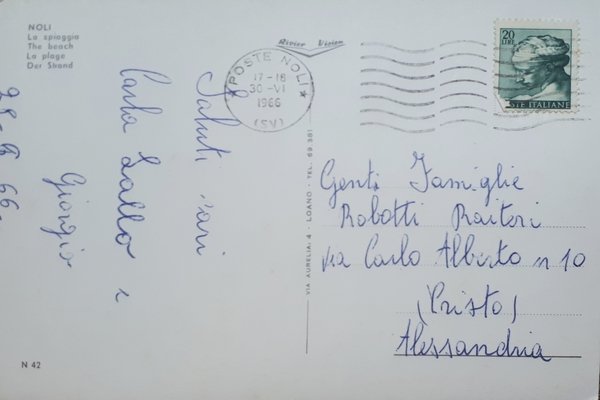 NOLI
La spiaggia
The beach
La plage
Der Strand
Rivier Vision
POSTE NOLI
17-18
30-VI
1966
(SV)
20
LIRE
STE ITALIANE
Saluti cari
Carla Lallo e
Giorgio
28-6 66
VIA AURELIA: 4 - LOANO - TEL. 69.381
Genti Famiglie
Robotti Raiteri
via Carlo Alberto n 10
(Cristo)
Alessandria
N 42